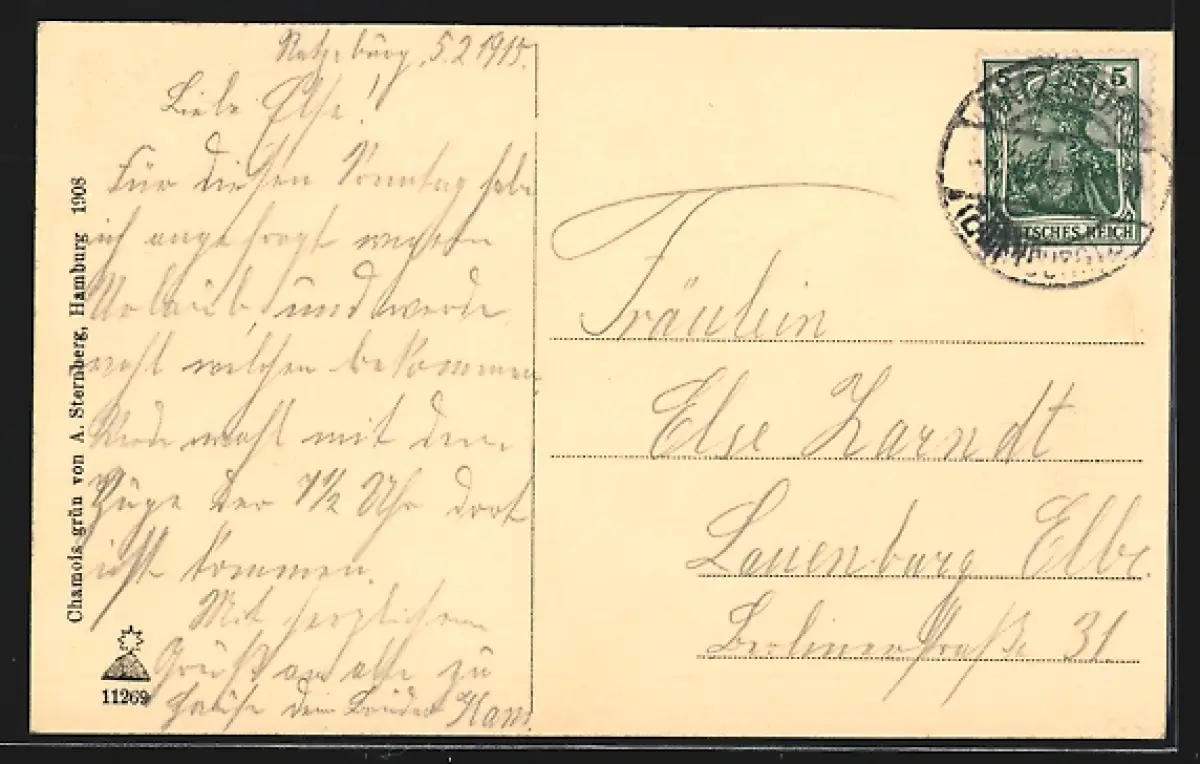 Ratzeburg, 5.2.1915.
Liebe Else!
Für diesen Sonntag habe
ich angefragt wegen
Urlaub, und werde
wohl welchen bekommen.
Werde wohl mit dem
Zuge der 7½ Uhr dort
ist kommen.
Mit herzlichem
Gruß an alle zu
Hause dein Bruder Hans
Chamois-grün von A. Sternberg, Hamburg 1908
11269
5 5
DEUTSCHES REICH
Fräulein
Else Zarndt
Lauenburg Elbe.
Berlinerstraße 31.